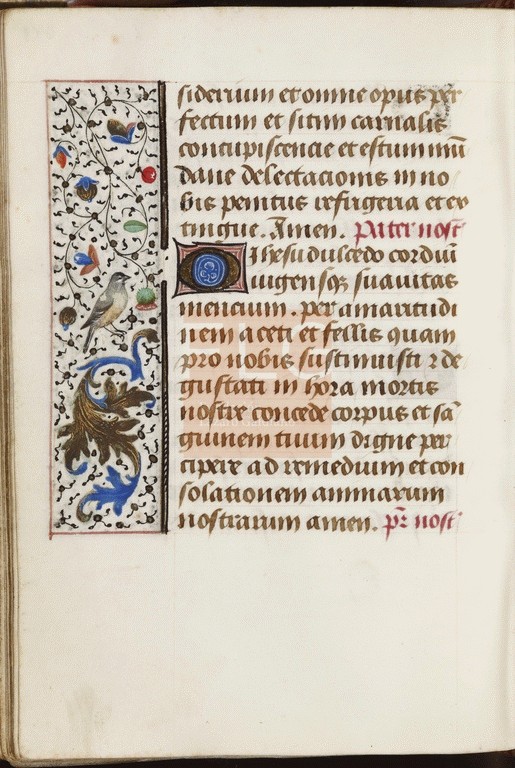 siderium et omne opus per
fectum et sitim carnalis
concupiscencie et estum mū
dane delectacionis in no
bis penitus refrigera et ex
tingue. Amen. Pater nost̄
O ihesu dulcedo cordiū
iugensqȝ suavitas
mencium. per amaritudi
nem aceti et fellis quam
pro nobis sustinuisti ⁊ de
gustati in hora mortis
nostre concede corpus et sā
guinem tuum digne per
cipere ad remedium et con
solationem animarum
nostrarum amen. pr̄ nost̄